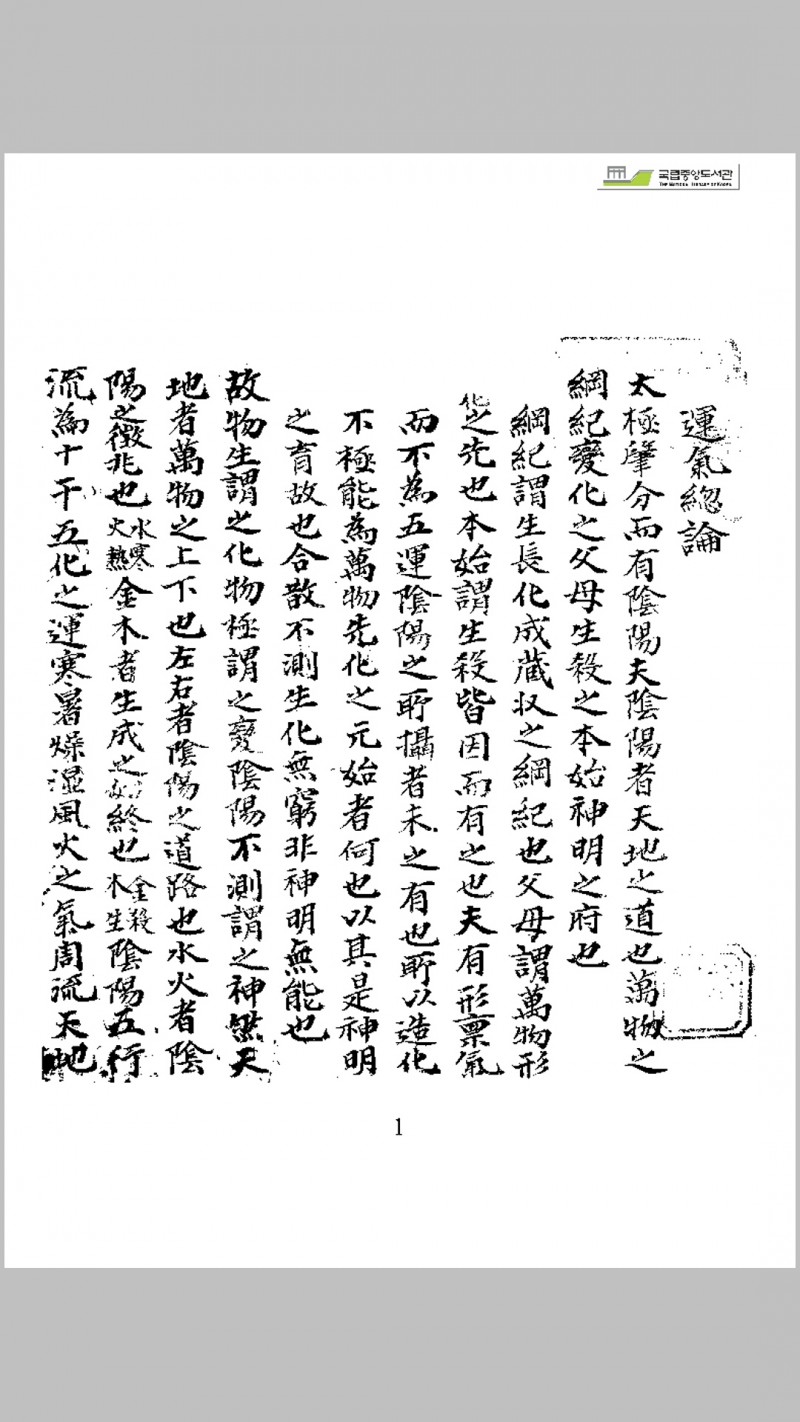 국립중앙도서관
THE NATIONAL LIBRARY OF KOREA
運氣緫論
太極肇分而有陰陽夫陰陽者天地之道也萬物之
綱紀變化之父母生殺之本始神明之府也
綱紀謂生長化成蔵収之綱紀也父母謂萬物形
化之先也本始謂生殺皆因而有之也夫有形禀氣
而不為五運陰陽之所攝者未之有也所以造化
不極能為萬物先化之元始者何也以其是神明
之育故也合散不測生化無窮非神明無能也
故物生謂之化物極謂之變陰陽不測謂之神然天
地者萬物之上下也左右者陰陽之道路也水火者陰
陽之徵兆也水寒火熱金木者生成之始終也金殺木生陰陽五行
流為十干五化之運寒暑燥湿風火之氣周流天地
1